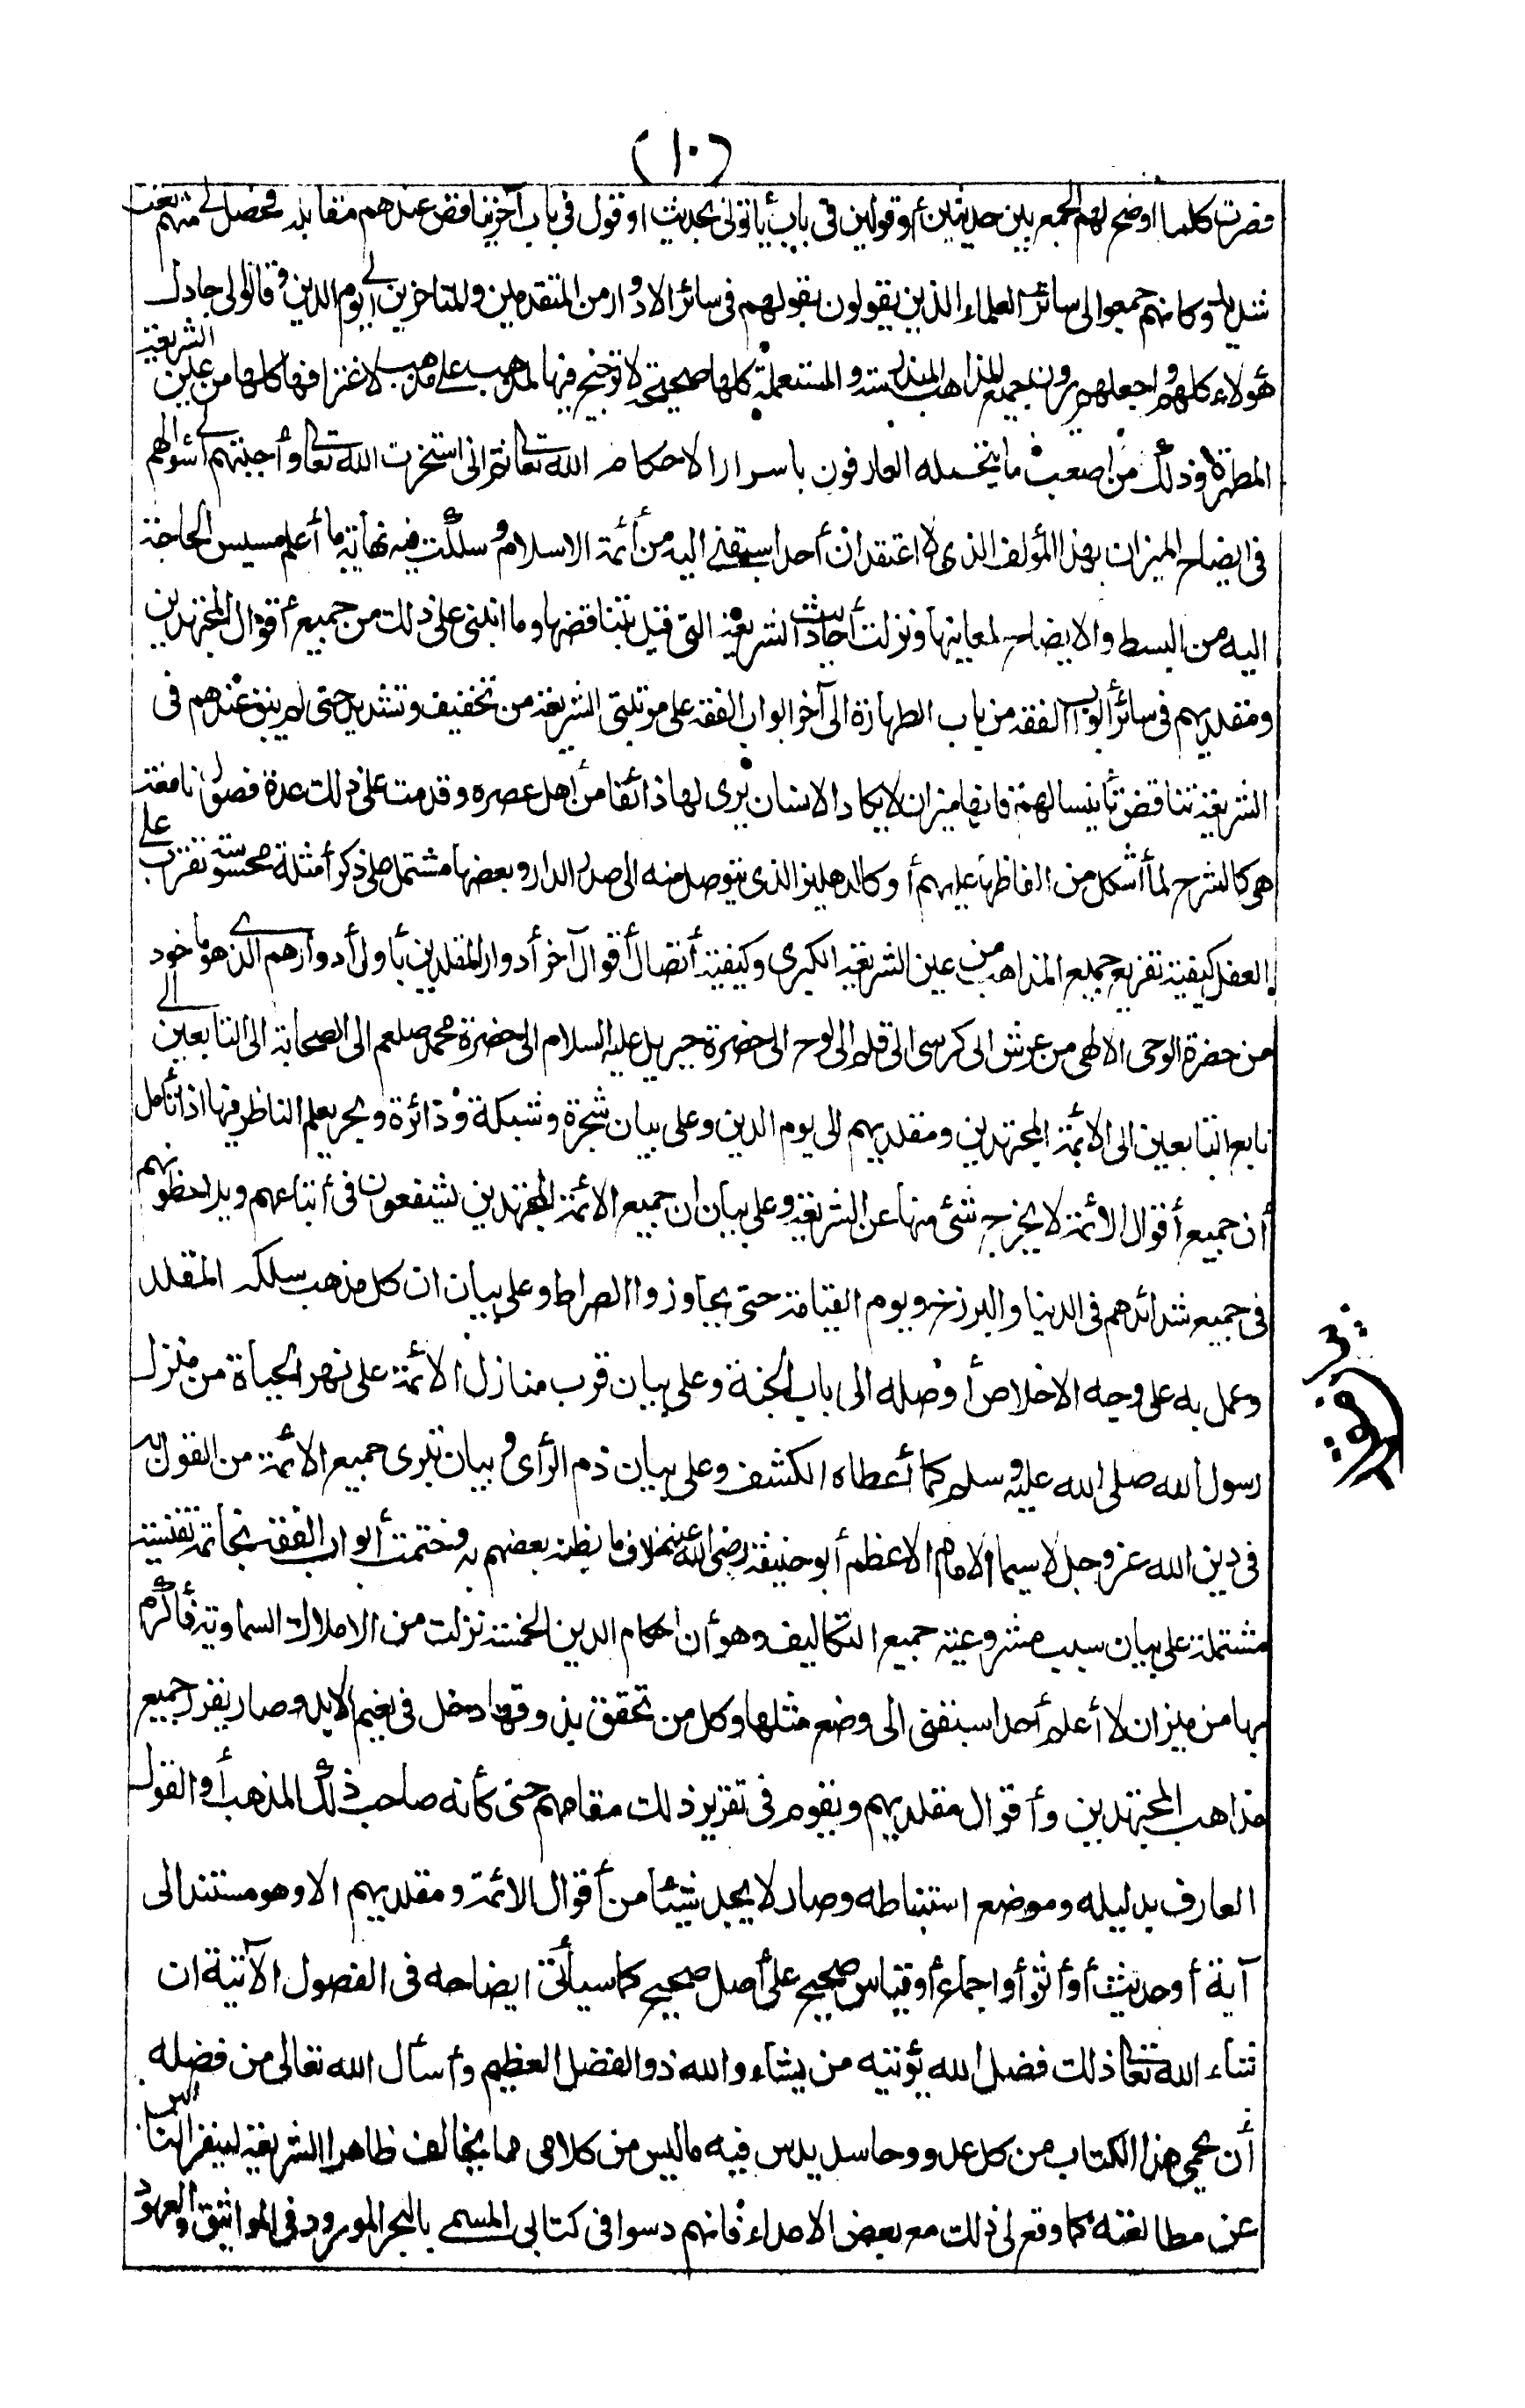 (١٠)
فصرت كلما اوضح لهم الجمع بين حديثين أو قولين في باب يأتوني بحديث او قول في باب آخر يناقض عندهم مقابله فحصل لي منهم تعب
شديد وكانهم جمعوا لى سائر العلماء الذين يقولون بقولهم في سائر الادوار من المتقدمين والمتاخرين الى يوم الدين وقالوا لى جادل
هؤلاء كلهم واجعلهم يرون جميع المذاهب المندرسة والمستعملة كلها صحيحة لا ترجيح فيها لمذهب على مذهب لاغترافها كلها من عين الشريعة
المطهرة وذلك من اصعب ما يتحمله العارفون باسرار الاحكام الله تعالى ثم انى استخرت الله تعالى وأجبتهم الى سؤالهم
في ايضاح الميزان بهذا المؤلف الذي لا اعتقد ان أحدا سبقني اليه من أئمة الاسلام وسلكت فيه نهاية ما أعلم مسيس الحاجة
اليه من البسط والايضاح لمعانيها ونزلت أحاديث الشريعة التي قيل بتناقضها وما انبنى على ذلك من جميع أقوال المجتهدين
ومقلديهم في سائر ابواب الفقه من باب الطهارة الى آخر ابواب الفقه على مرتبتى الشريعة من تخفيف وتشديد حتى لم يبق عندهم في
الشريعة تناقض تأنيسا لهم فانها ميزان لا يكاد الانسان يرى لها ذائقا من أهل عصره وقدمت على ذلك عدة فصول نافعة
هي كالشرح لما أشكل من الفاظها عليهم أو كالدهليز الذي يتوصل منه الى صدر الدار وبعضها مشتمل على ذكر أمثلة محسوسة تقرب على
العقل كيفية تفريع جميع المذاهب من عين الشريعة الكبرى وكيفية أتصال أقوال آخر أدوار المقلدين بأول أدوارهم الذي هو ماخوذ
من حضرة الوحى الالهى من عرش الى كرسى الى قلم الى لوح الى حضرة جبريل عليه السلام الى حضرة محمد صلعم الى الصحابة الى التابعين الى
تابع التابعين الى الائمة المجتهدين ومقلديهم الى يوم الدين وعلى بيان شجرة وشبكة ودائرة وبحر يعلم الناظر فيها اذا تأمل
أن جميع أقوال الائمة لا يخرج شئ منها عن الشريعة وعلى بيان ان جميع الائمة المجتهدين يشفعون في أتباعهم ويلاحظونهم
في جميع شدائدهم في الدنيا والبرزخ ويوم القيامة حتى يجاوزوا الصراط وعلى بيان ان كل مذهب سلكه المقلد
وعمل به على وجه الاخلاص أوصله الى باب الجنة وعلى بيان قرب منازل الائمة على نهر الحياة من منزل
رسول الله صلى الله عليه وسلم كما أعطاه الكشف وعلى بيان ذم الرأى وبيان تبرى جميع الائمة من القول به
في دين الله عز وجل لا سيما الامام الاعظم أبو حنيفة رضى الله عنه بخلاف ما يظنه بعضهم به وختمت أبواب الفقه بخاتمة نفيسة
مشتملة على بيان سبب مشروعية جميع التكاليف وهو أن احكام الدين الخمسة نزلت من الاملاك السماوية فأكرم
بها من ميزان لا أعلم أحدا سبقنى الى وضع مثلها وكل من تحقق بذوقها دخل في نعيم الابد وصار يقرر جميع
مذاهب المجتهدين وأقوال مقلديهم ويقوم في تقرير ذلك مقامهم حتى كأنه صاحب ذلك المذهب أو القول
العارف بدليله وموضع استنباطه وصار لا يجد شيئا من أقوال الائمة ومقلديهم الا وهو مستند الى
آية أو حديث أو أثر أو اجماع أو قياس صحيح على أصل صحيح كما سيأتى ايضاحه في الفصول الآتية ان
شاء الله تعالى ذلك فضل الله يؤتيه من يشاء والله ذو الفضل العظيم وأسأل الله تعالى من فضله
أن يحمى هذا الكتاب من كل عدو وحاسد يدس فيه ما ليس من كلامى مما يخالف ظاهر الشريعة لينفر الناس
عن مطالعته كما وقع لى ذلك مع بعض الاعداء فانهم دسوا في كتابى المسمى بالبحر المورود في المواثيق والعهود